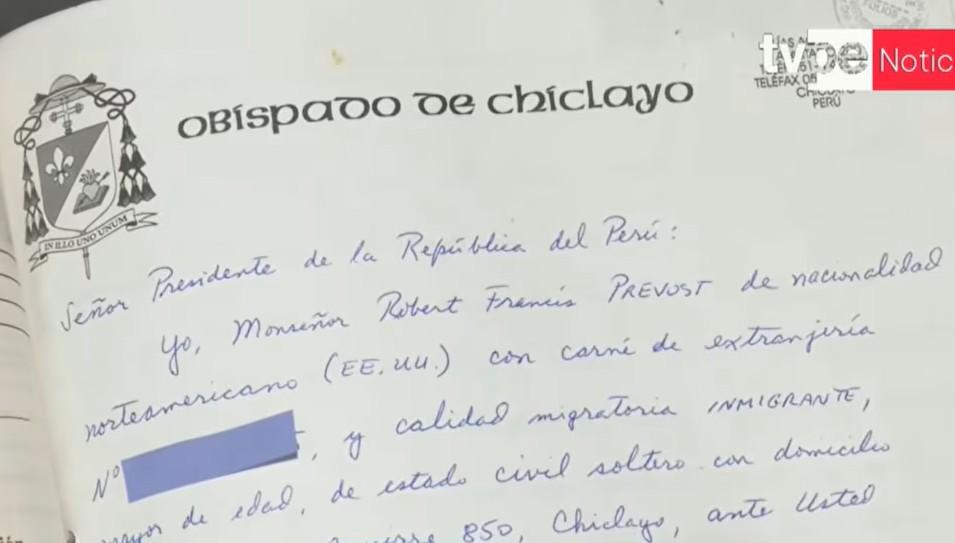 OBISPADO DE CHICLAYO
tvpe Notic
TELEFAX
PERÚ
IN ILLO UNO UNUM
Señor Presidente de la República del Perú:
Yo, Monseñor Robert Francis PREVOST de nacionalidad
norteamericano (EE.UU.) con carné de extranjería
Nº , y calidad migratoria INMIGRANTE,
mayor de edad, de estado civil soltero con domicilio
850, Chiclayo, ante Usted